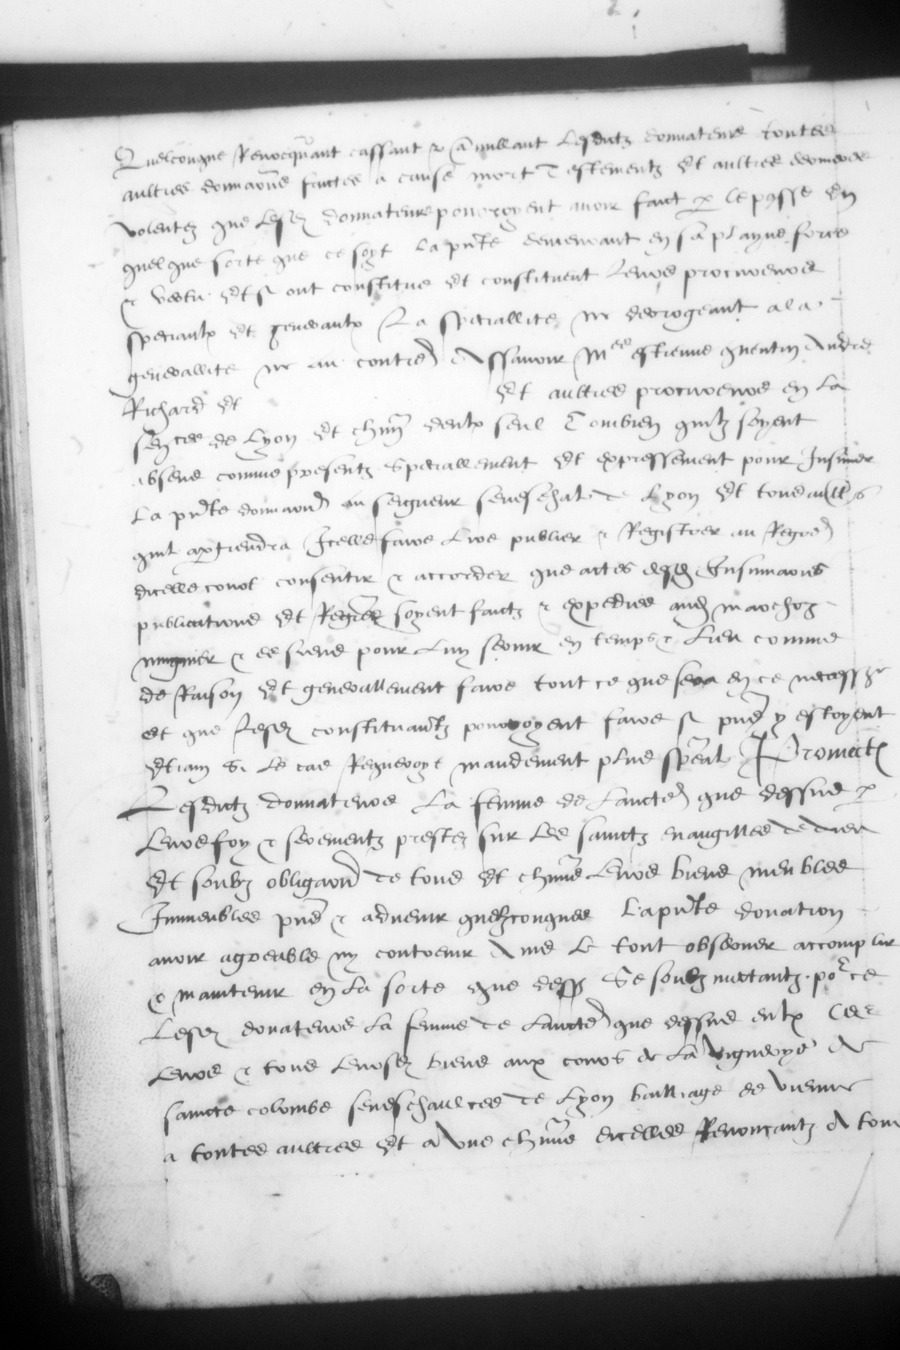 Quelconque Revocquant cassant & anullant Lesdictz donnateurs toutes
aultres donnaõns faictes a cause mort Testementz Et aultres dernieres
volentez que Lesd donnateurs pourroyent avoir faict p le passe En
quelque sorte que ce soyt La pnte demeurant en sa playne force
& vertu Et sy ont constitue Et constituent Leurs procureurs
speciaulx Et generaulx La speciallite ne derogeant a la
generallite ne au contre Assavoir Mes estienne quentin Andre
Richard Et Et aultres procureurs en La
senes de Lyon Et chun deulx seul Combien quilz soyent
absens comme presentz Speciallement Et expressement pour Insinuer
La pnte donnaon au seigneur seneschal de Lyon Et tous aulls
quil aptiendra Icelle faire Lire publier & Registrer au Regre
dicelle court consentir & accorder que actes desd Insinuaons
publications Et Regres soyent faictz & expedies aud marchoz
& es siens pour Luy servir en temps & Lieu comme
de Raison Et generallement faire tout ce que sera en ce necessre
et que Lesd constituantz pourroyent faire sy pns y estoyent
Etiam Si Le cas Requeroyt mandement plus special Promectt
Lesdictz donnateurs La femme de Laucte que dessus p
Leurs foy & serementz prestez sur Les sainctz evangilles de dieu
Et soubz obligaon de tous Et chuns Leurs biens meubles
Immeubles pns & advenir quelzconques La pnte donation
avoir agreable ny contrevenir Ains Le tout observer accomplir
& maintenir en La sorte que dess Se soubzmectantz por ce
Lesd donateurs La femme de Laucte que dessus eulx
Leurs & tous Leursd biens aux cours de La vigueyrye de
saincte colombe seneschaulcee de Lyon bailliage de vienne
a toutes aultres Et a une chune dicelles Renoncantz A tous